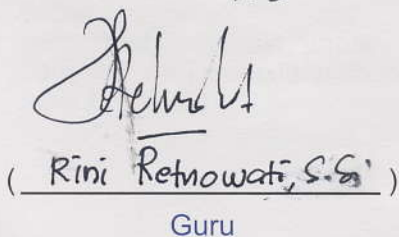 ( Rini Retnowati, S.Si )
Guru